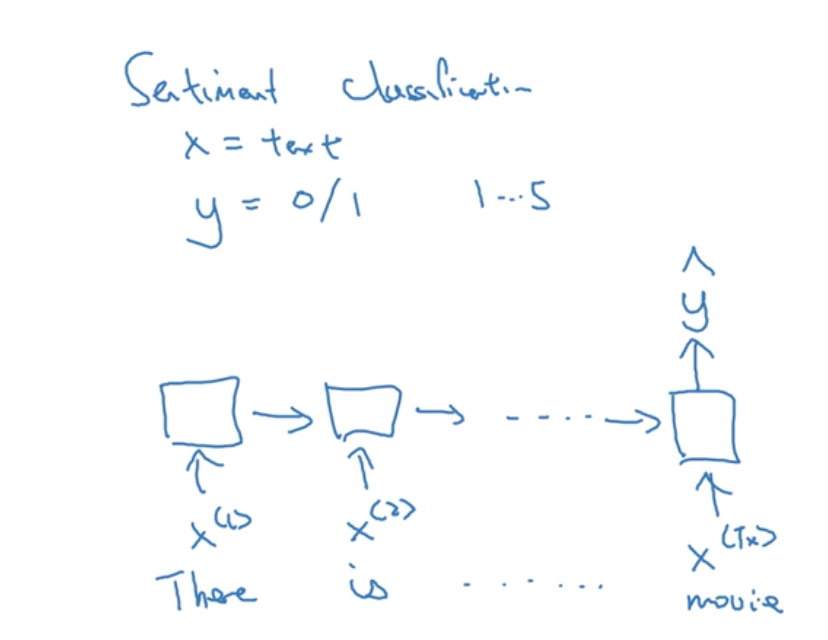 Sentiment classification
x = text
y = 0/1 1...5
ŷ
x<1> x<2> x<Tx>
There is ....... movie